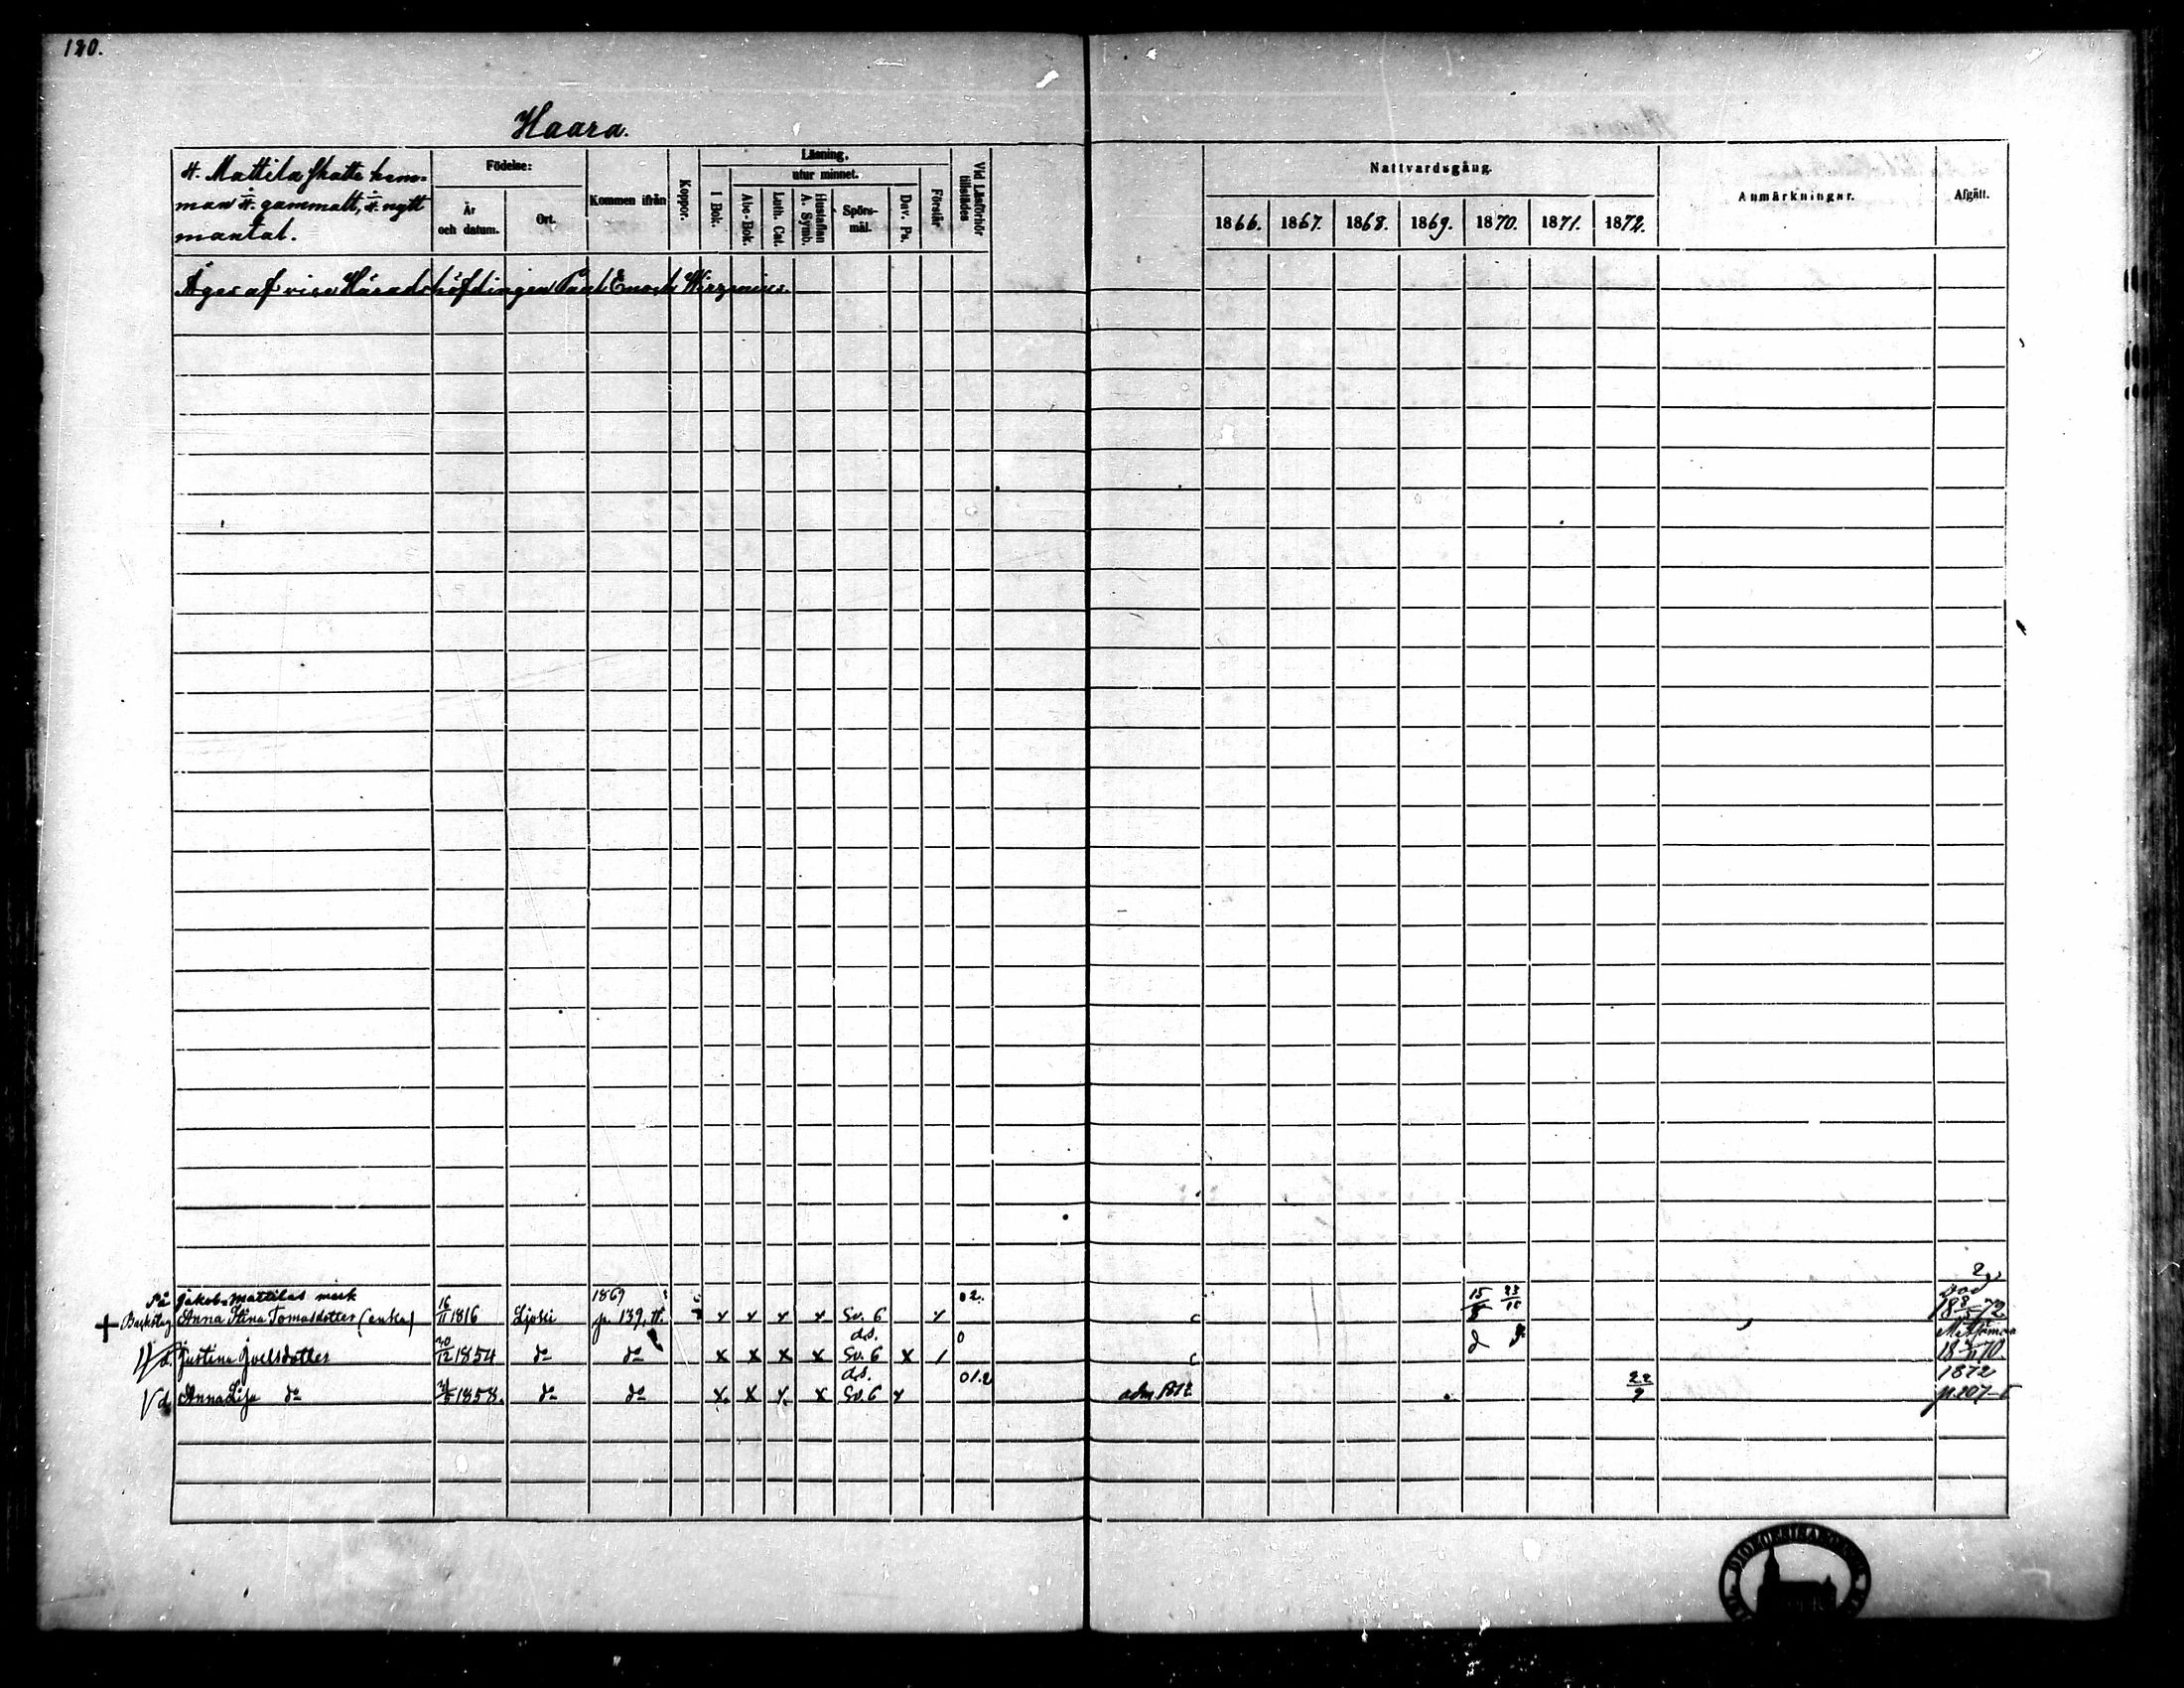 120.
Haara.
4. Mattila skatte hem-
man ¼ gammalt, ¼ nytt
mantal.
Födelse:
År och datum.
Ort.
Kommen ifrån
Koppor.
Läsning,
utur minnet.
I Bok.
Abc-Bok.
Luth. Cat.
Hustaflan A. Symb.
Spörs-mål.
Dav. Ps.
Förstår
Vid Läsförhör tillstädes
Nattvardsgång.
1866. 1867. 1868. 1869. 1870. 1871. 1872.
Anmärkningar.
Afgått.
Äges af vice Häradshöfdingen Paul Enoch Wirzenius.
På Jakobs Mattilas mark 1869 02.
+ Backstug Anna Stina Tomasdotter (enka) 16/11 1816 Liposki p. 139. x x x x Sv. 6 x c 15/8 23/10 Död 18 8/5 72
d. Justina Joelsdotter 30/12 1854 do do x x x x ds. Sv. 6 x / 0 c 18 70
d. Anna Lisa do 1858. do do x x x x ds. Sv. 6 x 01.2 adm. 22/9 1872 p. 207